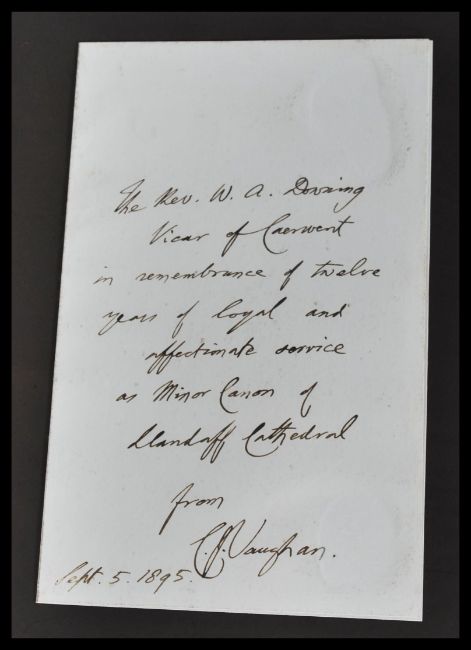 The Rev. W. A. Downing
Vicar of Caerwent
in remembrance of twelve
years of loyal and
affectionate service
as Minor Canon of
Llandaff Cathedral
from
C. J. Vaughan.
Sept. 5. 1895.